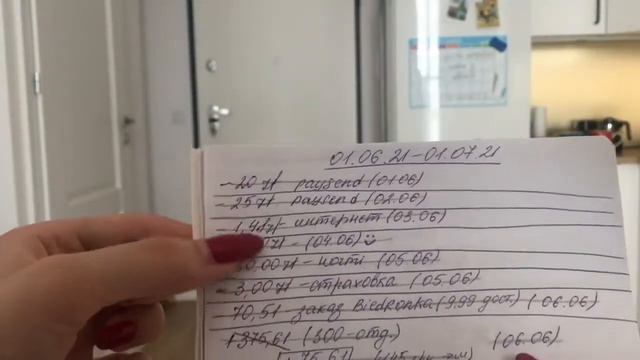 01.06.21-01.07.21
- 20 zł paysend (01.06)
- 25 zł paysend (02.06)
- интернет (03.06)
zł - (04.06)
0,00 zł - ногти (05.06)
- 3,00 zł - страховка (05.06)
- 70,51 - заказ Biedronka (9.99 дост.) (06.06)
1375,61 (300 - отд.) (06.06)